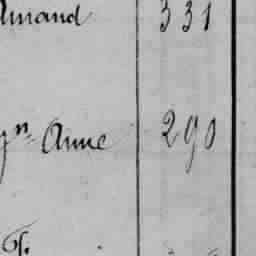 amand 331
gn. Anne 290
G.